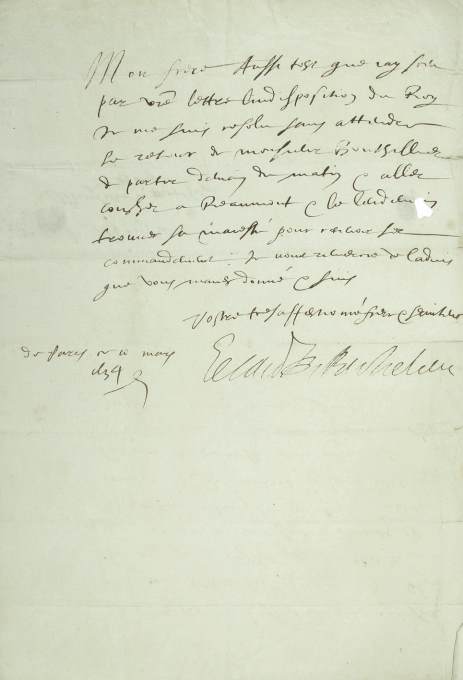 Mon frère Aussi tost que jay sceu
par vre lettre lindisposition du Roy
Je me suis resolu sans attendre
le retour de monsieur Bouthillier
de partir demain du matin & aller
coucher a Beaumont & le lendemain
trouver sa majesté pour recevoir ses
commandements. Je vous remercie de ladvis
que vous mavez donné & suis
Vostre tres affectionné frere & serviteur
de Paris ce 10 mars
Le Card. de Richelieu